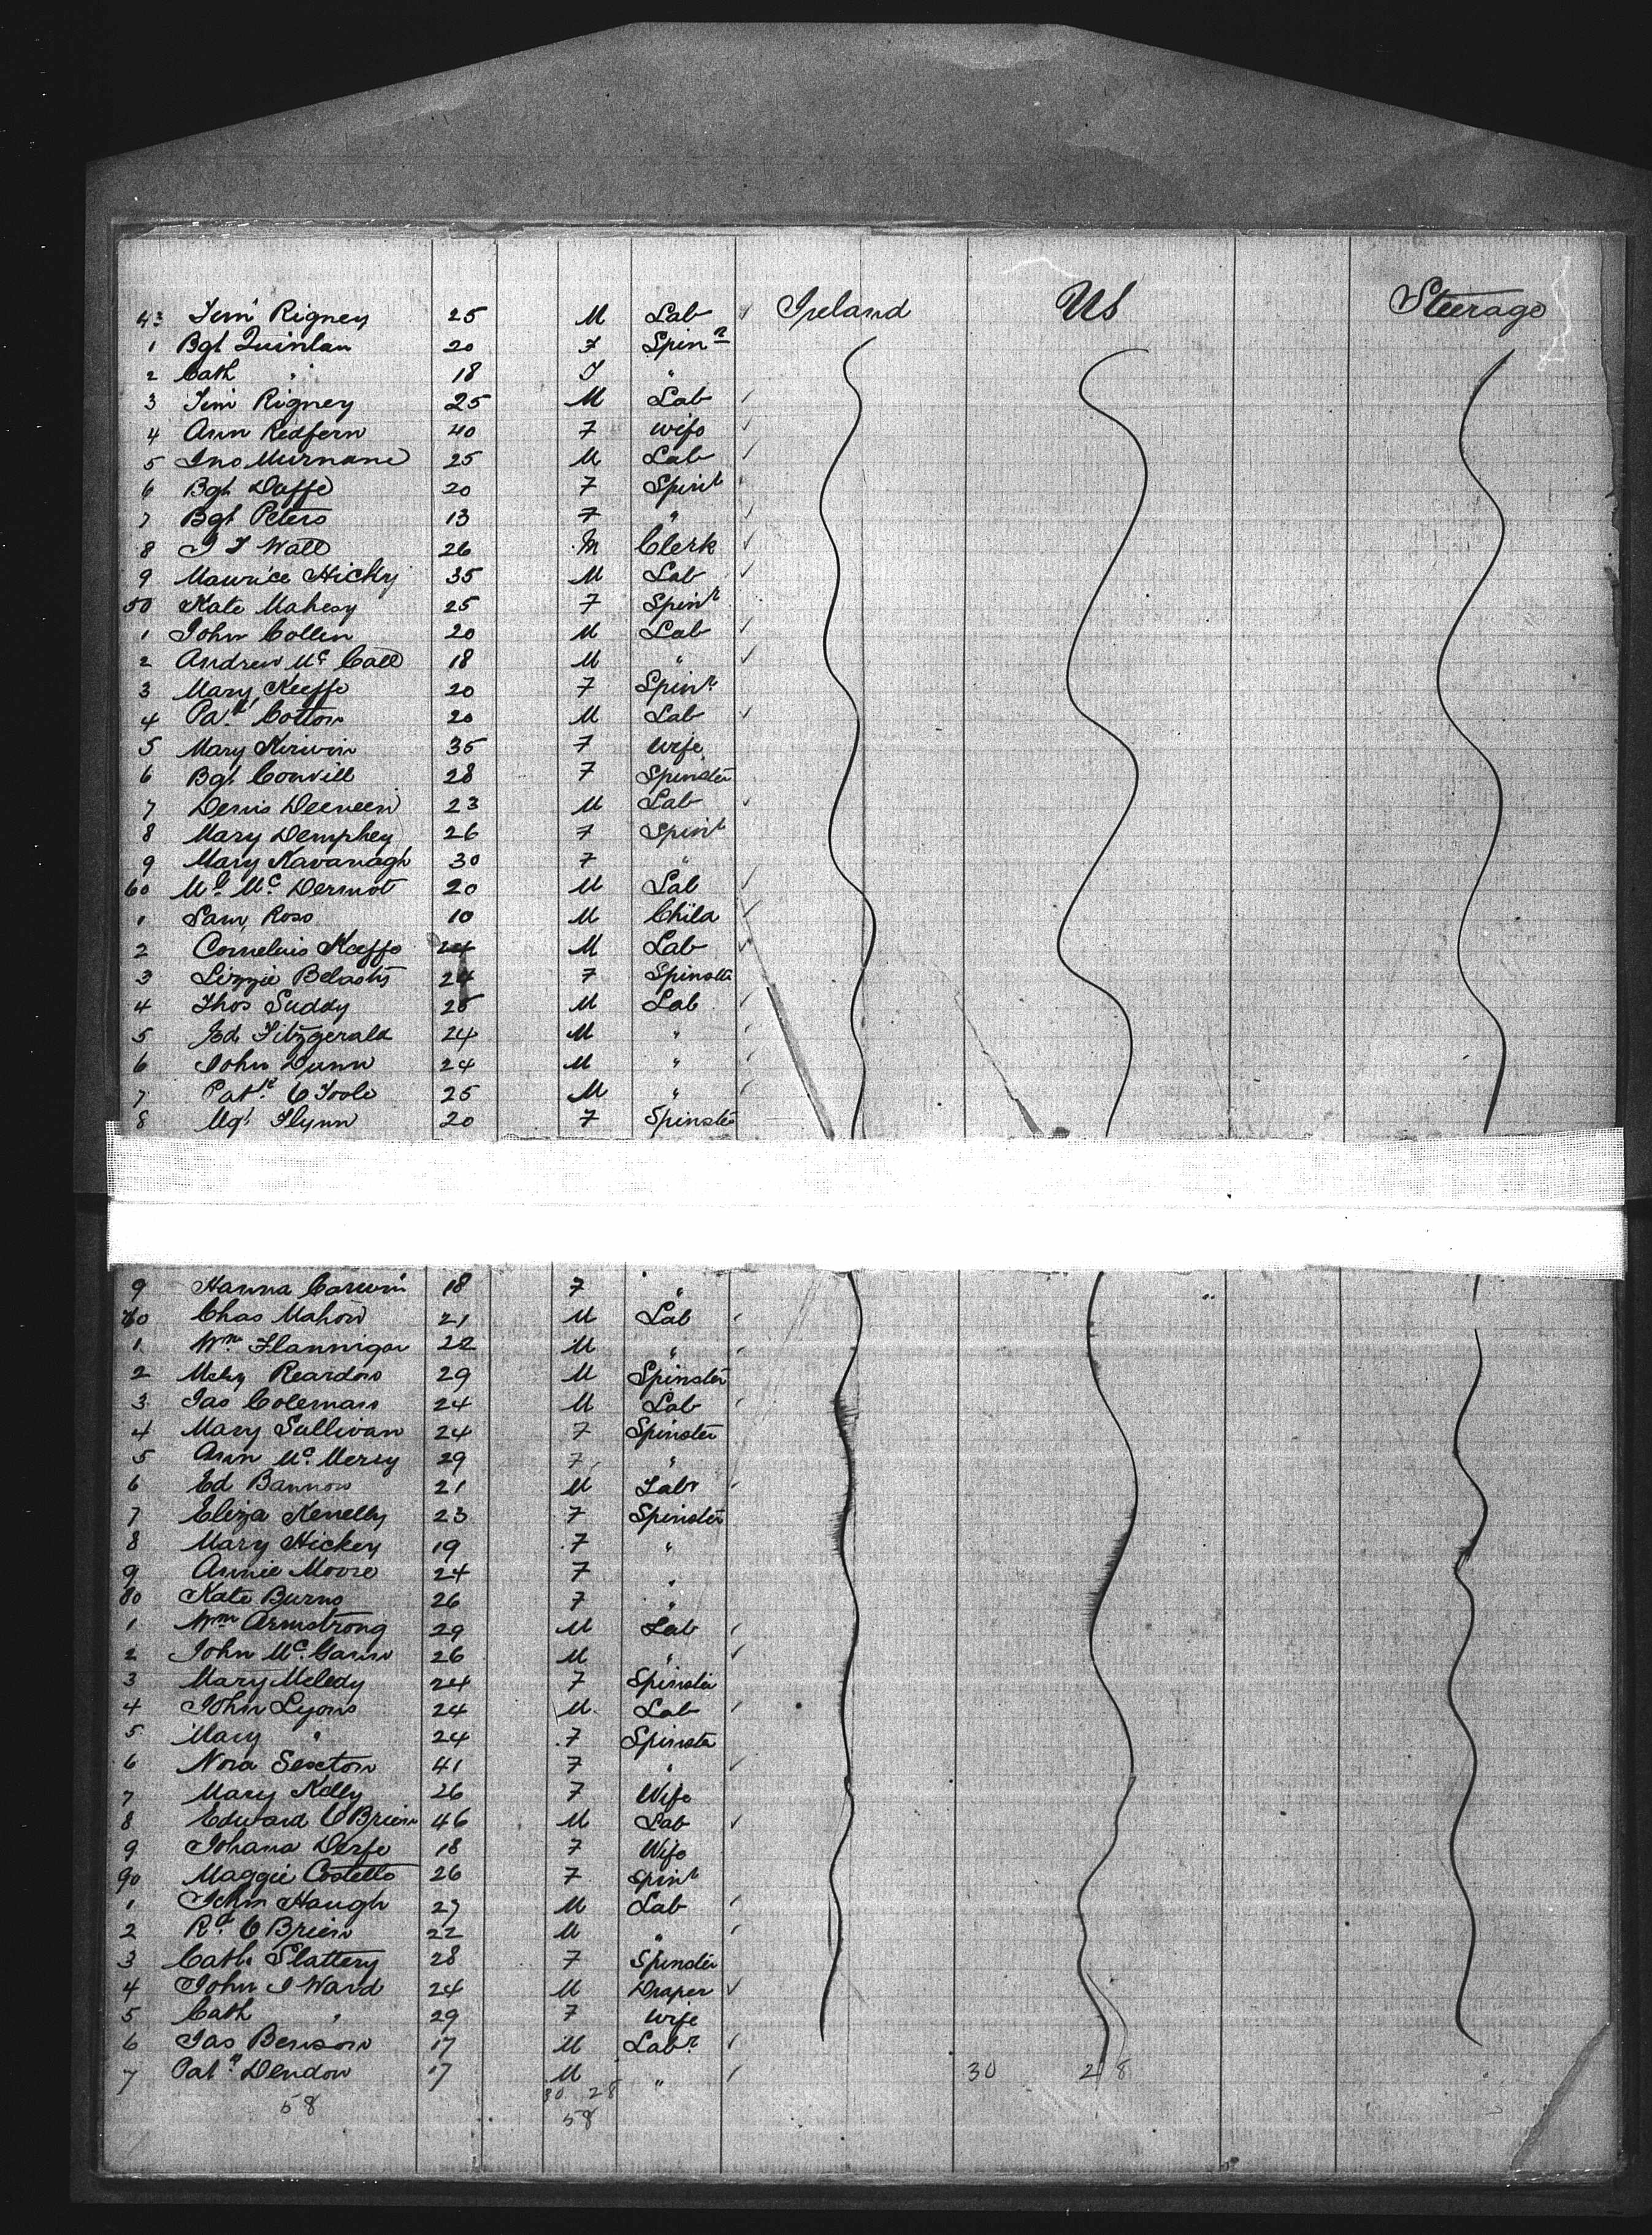 43 Tim Rigney 25 M Lab ✓ Ireland US Steerage
1 Bgt Quinlan 20 F Spinr
2 Cath " 18 F "
3 Tim Rigney 25 M Lab ✓
4 Ann Redfern 40 F Wife ✓
5 Jno Murnane 25 M Lab ✓
6 Bgt Daffe 20 F Spinr
7 Bgt Peters 13 F " ✓
8 J J Wall 26 M Clerk ✓
9 Maurice Hicky 35 M Lab ✓
50 Kate Mahesy 25 F Spinr
1 John Collin 20 M Lab ✓
2 Andrew Mc Call 18 M " ✓
3 Mary Keeffe 20 F Spinr
4 Patk Cotton 20 M Lab ✓
5 Mary Kirwin 35 F Wife
6 Bgt Convill 28 F Spinster
7 Denis Deeneen 23 M Lab ✓
8 Mary Demphey 26 F Spinr
9 Mary Kavanagh 30 F "
60 Ml Mc Dermot 20 M Lab ✓
1 Sam Ross 10 M Child ✓
2 Cornelius Keeffe 24 M Lab ✓
3 Lizzie 24 F Spinster
4 Thos Suddy 25 M Lab ✓
5 Ed Fitzgerald 24 M " ✓
6 John Dunn 24 M " ✓
7 Patk O Toole 25 M " ✓
8 Mgt Flynn 20 F Spinster
9 Hanna 18 F "
70 Chas Mahon 21 M Lab ✓
1 Wm Flannigan 22 M " ✓
2 Reardon 29 M Spinster
3 Jas Coleman 24 M Lab ✓
4 Mary Sullivan 24 F Spinster
5 Ann Mc Mersy 29 F "
6 Ed Bannon 21 M Labr ✓
7 Eliza Kenelly 23 F Spinster
8 Mary Hickey 19 F "
9 Annie Moore 24 F "
80 Kate Burns 26 F "
1 Wm Armstrong 29 M Lab ✓
2 John Mc Gann 26 M " ✓
3 Mary Meledy 24 F Spinster
4 John Lyons 24 M Lab ✓
5 Mary " 24 F Spinster
6 Nora Sexton 41 F " ✓
7 Mary Kelly 26 F Wife
8 Edward O Brien 46 M Lab ✓
9 Johana Derfe 18 F Wife
90 Maggie Costello 26 F Spinr
1 John Haugh 27 M Lab ✓
2 Rd O Brien 22 M " ✓
3 Cath Slattery 28 F Spinster
4 John J Ward 24 M Draper ✓
5 Cath " 29 F Wife
6 Jas Benson 17 M Labr ✓
7 Patk Dendon 17 M " ✓ 30 28
58 30 28
58